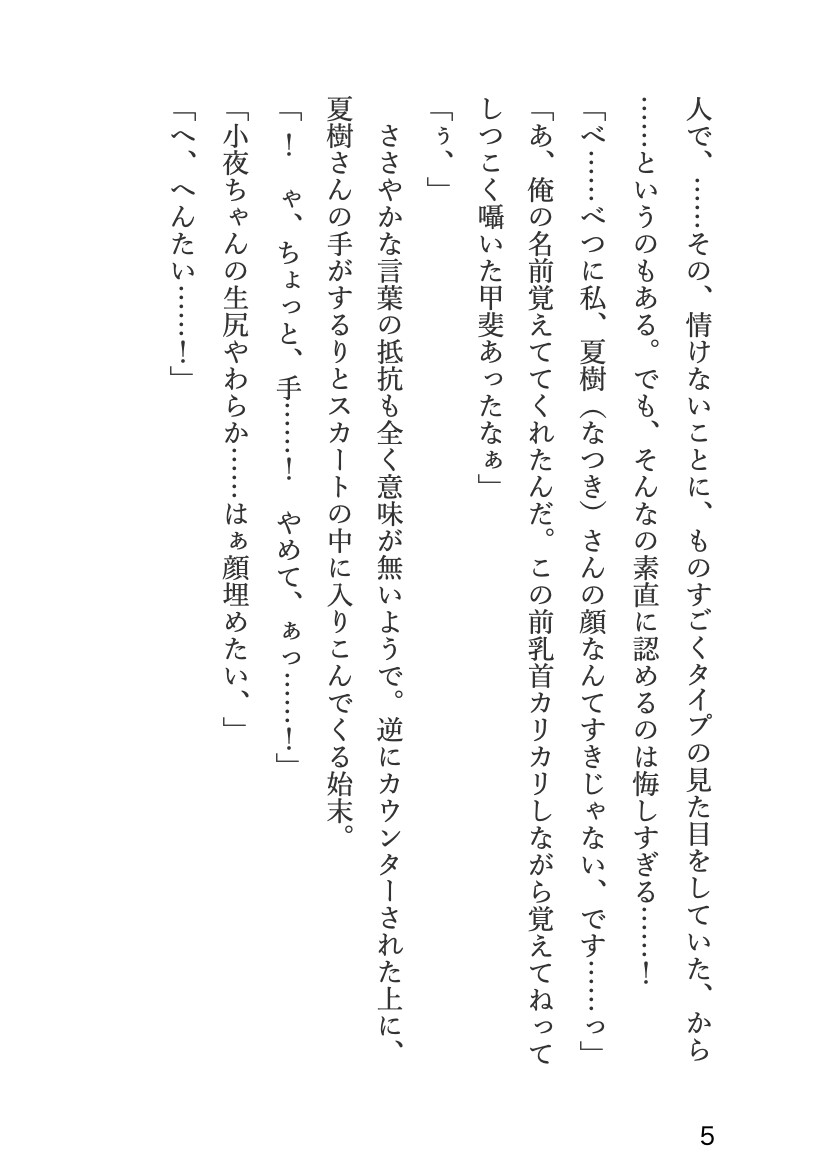 人で、……その、情けないことに、ものすごくタイプの見た目をしていた、から
……というのもある。でも、そんなの素直に認めるのは悔しすぎる……！
「べ……べつに私、夏樹（なつき）さんの顔なんてすきじゃない、です……っ」
「あ、俺の名前覚えててくれたんだ。この前乳首カリカリしながら覚えてねって
しつこく囁いた甲斐あったなぁ」
「ぅ、」
　ささやかな言葉の抵抗も全く意味が無いようで。逆にカウンターされた上に、
夏樹さんの手がするりとスカートの中に入りこんでくる始末。
「！　ゃ、ちょっと、手……！　やめて、ぁっ……！」
「小夜ちゃんの生尻やわらか……はぁ顔埋めたい、」
「へ、へんたい……！」
5